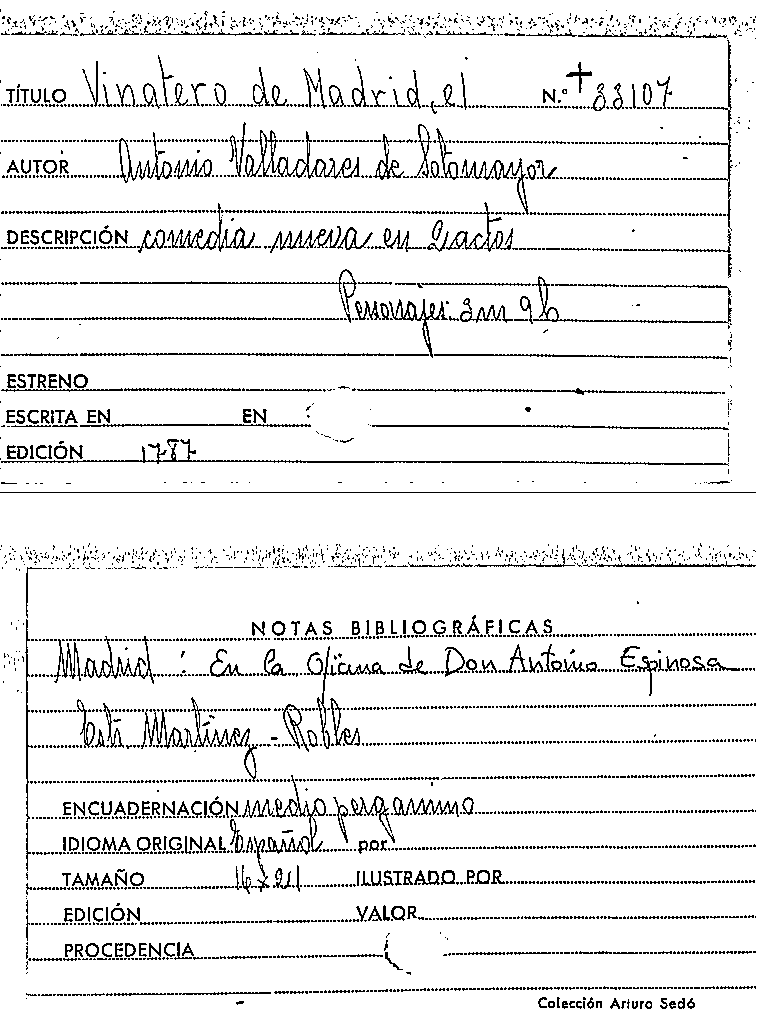 TÍTULO Vinatero de Madrid, el N.º + 33107
AUTOR Antonio Valladares de Sotomayor
DESCRIPCIÓN comedia nueva en 2 actos
Personajes: 3m 9h
ESTRENO
ESCRITA EN EN
EDICIÓN 1787
NOTAS BIBLIOGRÁFICAS
Madrid : En la Oficina de Don Antonio Espinosa
Estr. Martínez - Robles
ENCUADERNACIÓN medio pergamino
IDIOMA ORIGINAL Español por
TAMAÑO 16 x 21 ILUSTRADO POR
EDICIÓN VALOR
PROCEDENCIA
Colección Arturo Sedó